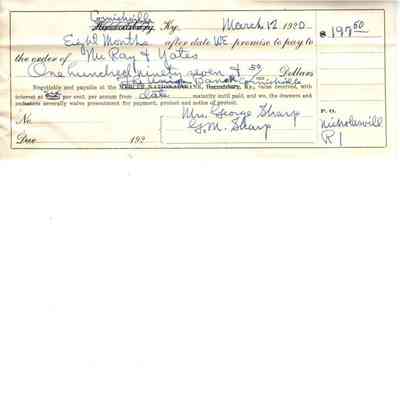 Cornishville
Harrodsburg, Ky. March 12 1920 $197.50
Eight Months after date WE promise to pay to
the order of Mc Ray & Yates
One hundred ninety seven & 50 Dollars
The Union Bank Cornishville
Negotiable and payable at the MERCER NATIONAL BANK, Harrodsburg, Ky., value received, with
interest at per cent. per annum from date maturity until paid, and we, the drawers and
endorsers severally waive presentment for payment, protest and notice of protest.
No. Mrs. George Sharp P. O.
Due 192 G. M. Sharp Nicholasvill
R 1